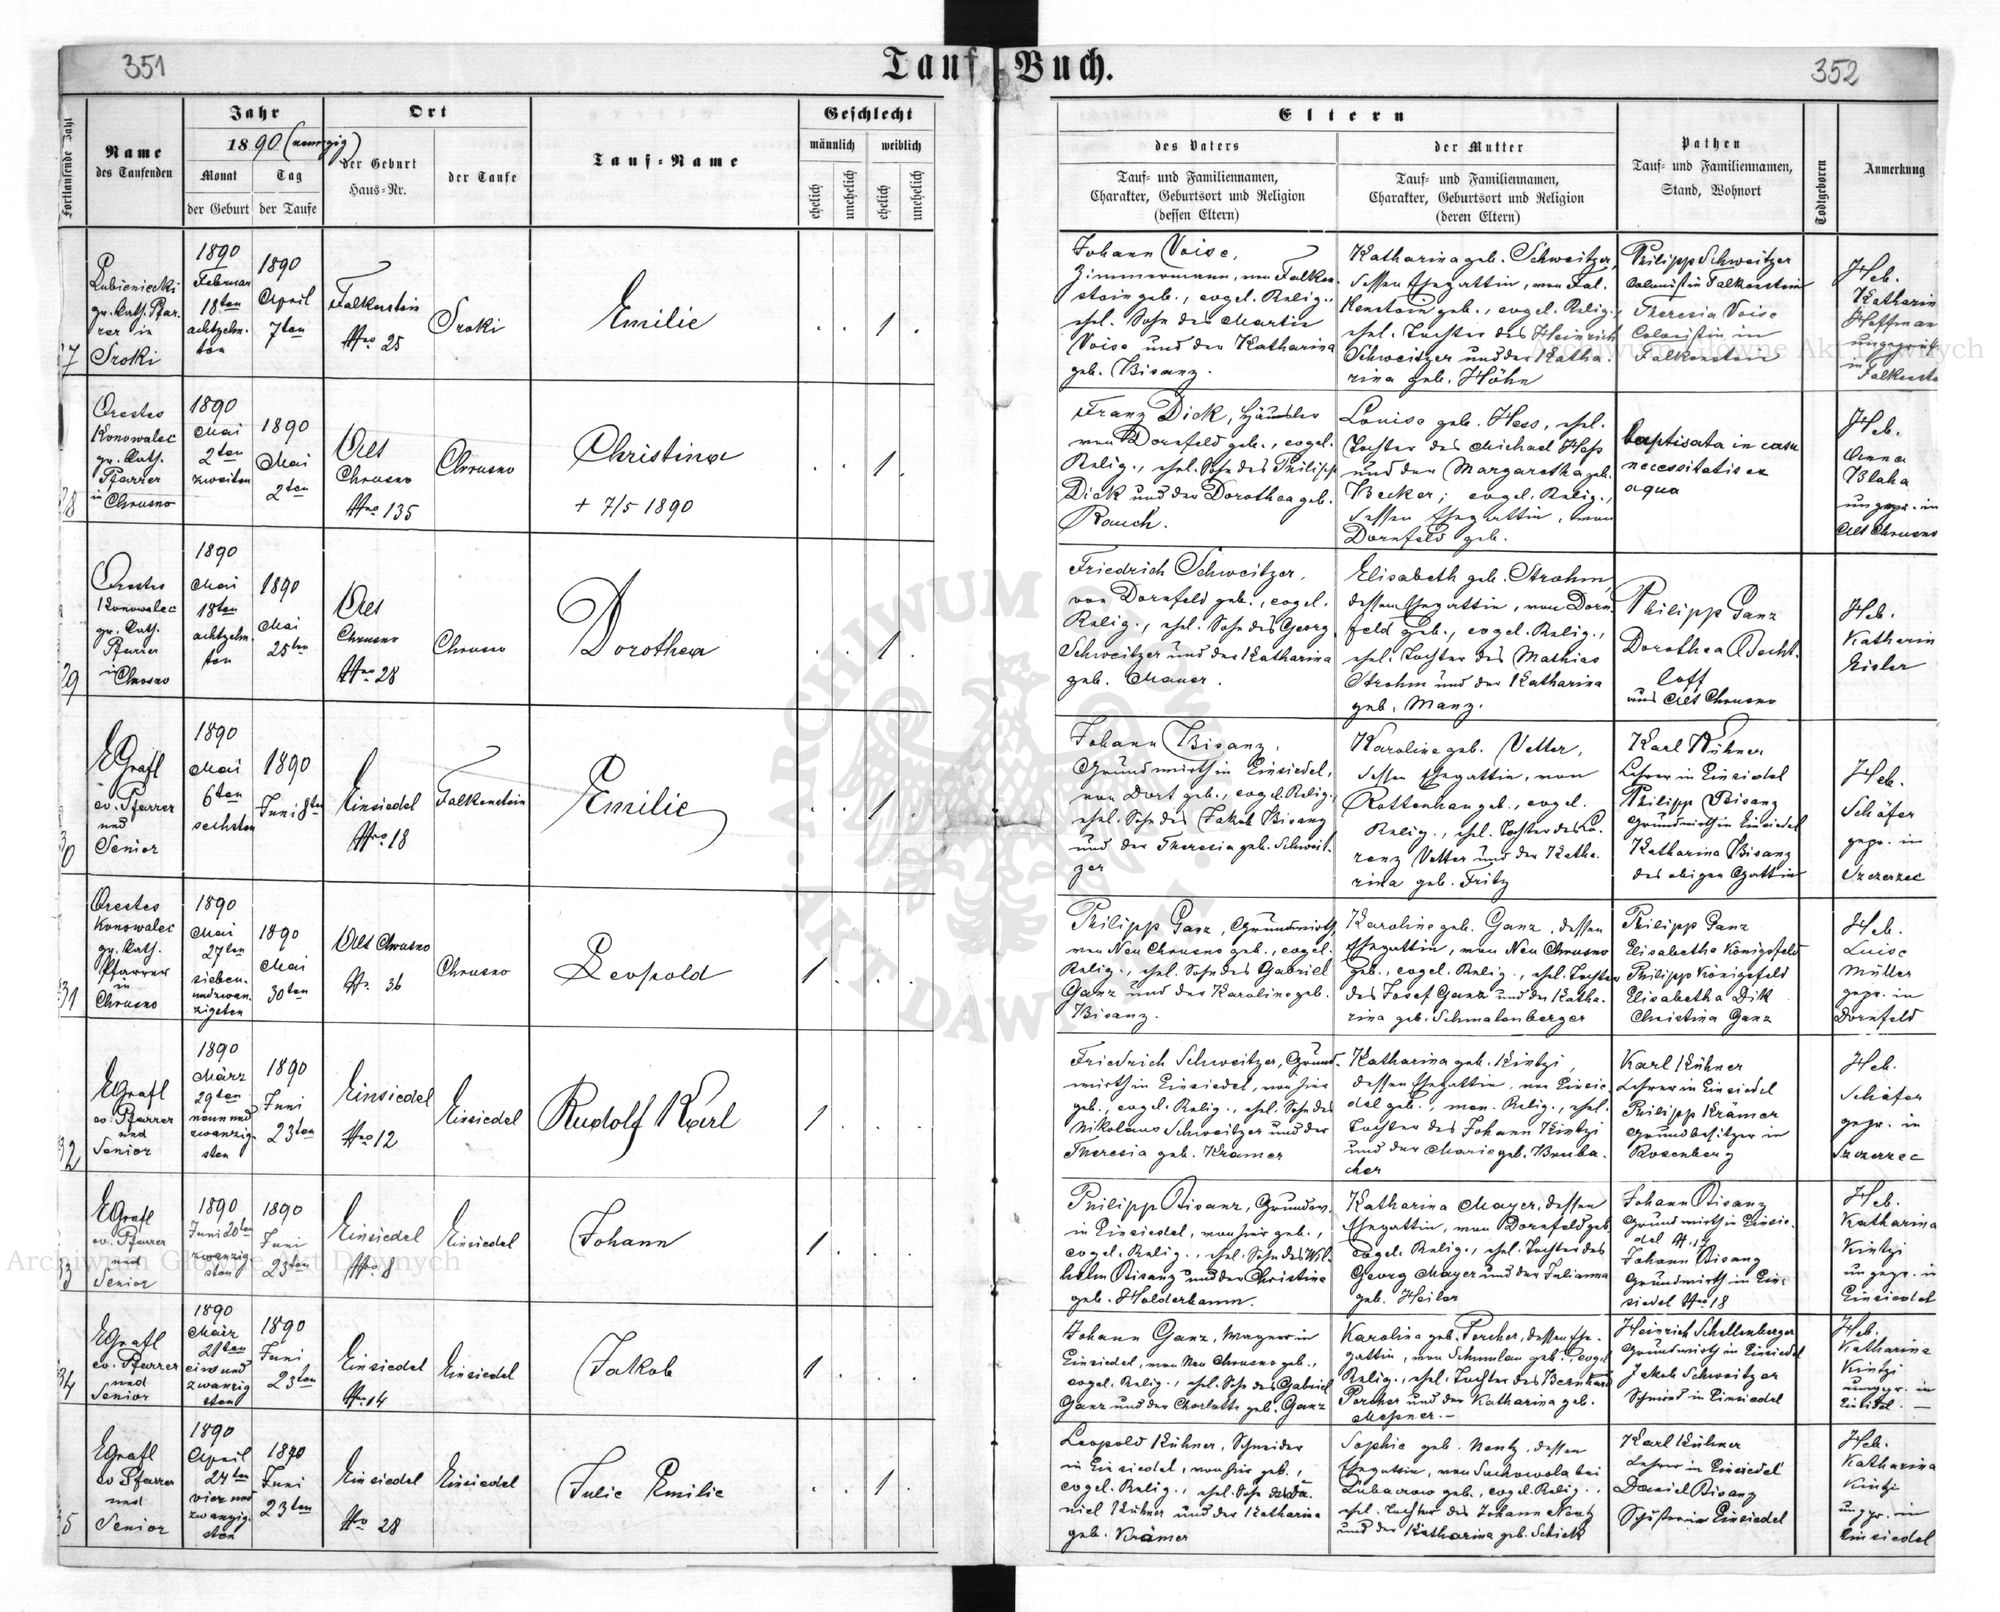 351
Tauf-Buch.
352
Fortlaufende Zahl
Name
des Taufenden
Jahr
1890 (neunzig)
Monat
der Geburt
Tag
der Taufe
Ort
der Geburt
Haus-Nr.
der Taufe
Tauf-Name
Geschlecht
männlich
weiblich
ehelich
unehelich
ehelich
unehelich
Eltern
des Vaters
Tauf- und Familiennamen,
Charakter, Geburtsort und Religion
(dessen Eltern)
der Mutter
Tauf- und Familiennamen,
Charakter, Geburtsort und Religion
(deren Eltern)
Pathen
Tauf- und Familiennamen,
Stand, Wohnort
Todtgeboren
Anmerkung
7
Lubieniecki
gr. kath. Pfar-
rer in
Sroki
1890
Februar
18ten
achtzehn-
ten
1890
April
7ten
Falkenstein
Nro 25
Sroki
Emilie
1
Johann Voise,
Zimmermann, von Falken-
stein geb., evgel. Relig.,
ehel. Sohn des Martin
Voise und der Katharina
geb. Bisanz.
Katharina geb. Schweitzer,
dessen Ehegattin, von Fal-
kenstein geb., evgel. Relig.,
ehel. Tochter des Heinrich
Schweitzer und der Katha-
rina geb. Höhn
Philipp Schweitzer
Colonist in Falkenstein
Theresia Voise
Colonistin in
Falkenstein
Heb.
Katharin
Hoffman
ungeprüft
in Falkenste
8
Orestes
Konowalec
gr. kath.
Pfarrer
in Chrusno
1890
Mai
2ten
zweiten
1890
Mai
2ten
Alt
Chrusno
Nro 135
Chrusno
Christina
+ 7/5 1890
1
Franz Dick, Häusler
von Dornfeld geb., evgel.
Relig., ehel. Sohn des Philipp
Dick und der Dorothea geb.
Rauch.
Louise geb. Hess, ehel.
Tochter des Michael Hess
und der Margaretha geb.
Becker; evgel. Relig.,
dessen Ehegattin, von
Dornfeld geb.
baptisata in casu
necessitatis ex
aqua
Heb.
Anna
Blaha
ungepr. in
Alt Chrusno
29
Orestes
Konowalec
gr. kath.
Pfarrer
in Chrusno
1890
Mai
18ten
achtzehn-
ten
1890
Mai
25ten
Alt
Chrusno
Nro 28
Chrusno
Dorothea
1
Friedrich Schweitzer,
von Dornfeld geb., evgel.
Relig., ehel. Sohn des Georg
Schweitzer und der Katharina
geb. Mauer.
Elisabeth geb. Strohm,
dessen Ehegattin, von Dorn-
feld geb., evgel. Relig.,
ehel. Tochter des Mathias
Strohm und der Katharina
geb. Manz.
Philipp Ganz
Dorothea Becht-
loff
aus Alt Chrusno
Heb.
Katharin
Eisler
30
EGrafl
ev. Pfarrer
und
Senior
1890
Mai
6ten
sechsten
1890
Juni 8ten
Einsiedel
Nro 18
Falkenstein
Emilie
1
Johann Bisanz,
Grundwirth in Einsiedel,
von Dort geb., evgel. Relig.,
ehel. Sohn des Jakob Bisanz
und der Theresia geb. Schweit-
zer
Karoline geb. Vetter,
dessen Ehegattin, von
Rottenhan geb., evgel.
Relig., ehel. Tochter des Lo-
renz Vetter und der Katha-
rina geb. Fritz
Karl Kühner
Lehrer in Einsiedel
Philipp Bisanz
Grundwirth in Einsiedel
Katharina Bisanz
des obigen Gattin
Heb.
Schäfer
gepr. in
Szczerzec
31
Orestes
Konowalec
gr. kath.
Pfarrer
in
Chrusno
1890
Mai
27ten
sieben-
undzwan-
zigsten
1890
Mai
30ten
Alt Chrusno
Nr. 36
Chrusno
Leopold
1
Philipp Ganz, Grundwirth,
von Neu Chrusno geb., evgel.
Relig., ehel. Sohn des Gabriel
Ganz und der Karoline geb.
Bisanz.
Karoline geb. Ganz, dessen
Ehegattin, von Neu Chrusno
geb., evgel. Relig., ehel. Tochter
des Josef Ganz und der Katha-
rina geb. Schmalenberger
Philipp Ganz
Elisabetha Königsfeld
Philipp Königsfeld
Elisabetha Dik
Christina Ganz
Heb.
Luise
Müller
gepr. in
Dornfeld
32
EGrafl
ev. Pfarrer
und
Senior
1890
März
29ten
neunund
zwanzig-
sten
1890
Juni
23ten
Einsiedel
Nro 12
Einsiedel
Rudolf Karl
1
Friedrich Schweitzer, Grund-
wirth in Einsiedel, von hier
geb., evgel. Relig., ehel. Sohn des
Nikolaus Schweitzer und der
Theresia geb. Kramer
Katharina geb. Kintzi,
dessen Ehegattin, von Einsie-
del geb., men. Relig., ehel.
Tochter des Johann Kintzi
und der Marie geb. Bruba-
cher
Karl Kühner
Lehrer in Einsiedel
Philipp Krämer
Grundbesitzer in
Rosenberg
Heb.
Schäfer
gepr. in
Szczerzec
3
EGrafl
ev. Pfarrer
und
Senior
1890
Juni 20ten
zwanzig-
sten
1890
Juni
23ten
Einsiedel
Nro 8
Einsiedel
Johann
1
Philipp Bisanz, Grundw.
in Einsiedel, von hier geb.,
evgel. Relig., ehel. Sohn des Wil-
helm Bisanz und der Christine
geb. Holderbaum.
Katharina Mayer, dessen
Ehegattin, von Dornfeld geb.
evgel. Relig., ehel. Tochter des
Georg Mayer und der Julianna
geb. Heiler
Johann Bisanz
Grundwirth in Einsie-
del
Johann Bisanz
Grundwirth in Ein-
siedel Nro 18
Heb.
Katharina
Kintzi
ungepr. in
Einsiedel
34
EGrafl
ev. Pfarrer
und
Senior
1890
März
21ten
einsund
zwanzig
sten
1890
Juni
23ten
Einsiedel
Nro 14
Einsiedel
Jakob
1
Johann Ganz, Wagner in
Einsiedel, von Neu Chrusno geb.,
evgel. Relig., ehel. Sohn des Gabriel
Ganz und der Charlotte geb. Ganz
Karolina geb. Porcher, dessen Ehe-
gattin, von Schumlau geb., evgel.
Relig., ehel. Tochter des Bernhard
Porcher und der Katharina geb.
Messner.-
Heinrich Schellenberger
Grundwirth in Einsiedel
Jakob Schweitzer
Schmied in Einsiedel
Heb.
Katharina
Kintzi
ungepr. in
5
EGrafl
ev Pfarrer
und
Senior
1890
April
24ten
vierund
zwanzig-
sten
1890
Juni
23ten
Einsiedel
Nro 28
Einsiedel
Julie Emilie
1
Leopold Kühner, Schneider
in Einsiedel, von hier geb.,
evgel. Relig., ehel. Sohn des Da-
niel Kühner und der Katharina
geb. Krämer
Sophie geb. Nentz, dessen
Ehegattin, von Suchowola bei
Lubaczow geb., evgel. Relig.,
ehel. Tochter des Johann Nentz
und der Katharina geb. Schick
Karl Kühner
Lehrer in Einsiedel
Daniel Bisanz
Schuster in Einsiedel
Heb.
Katharina
Kintzi
ungepr. in
Einsiedel
Archiwum Główne Akt Dawnych
Archiwum Główne Akt Dawnych